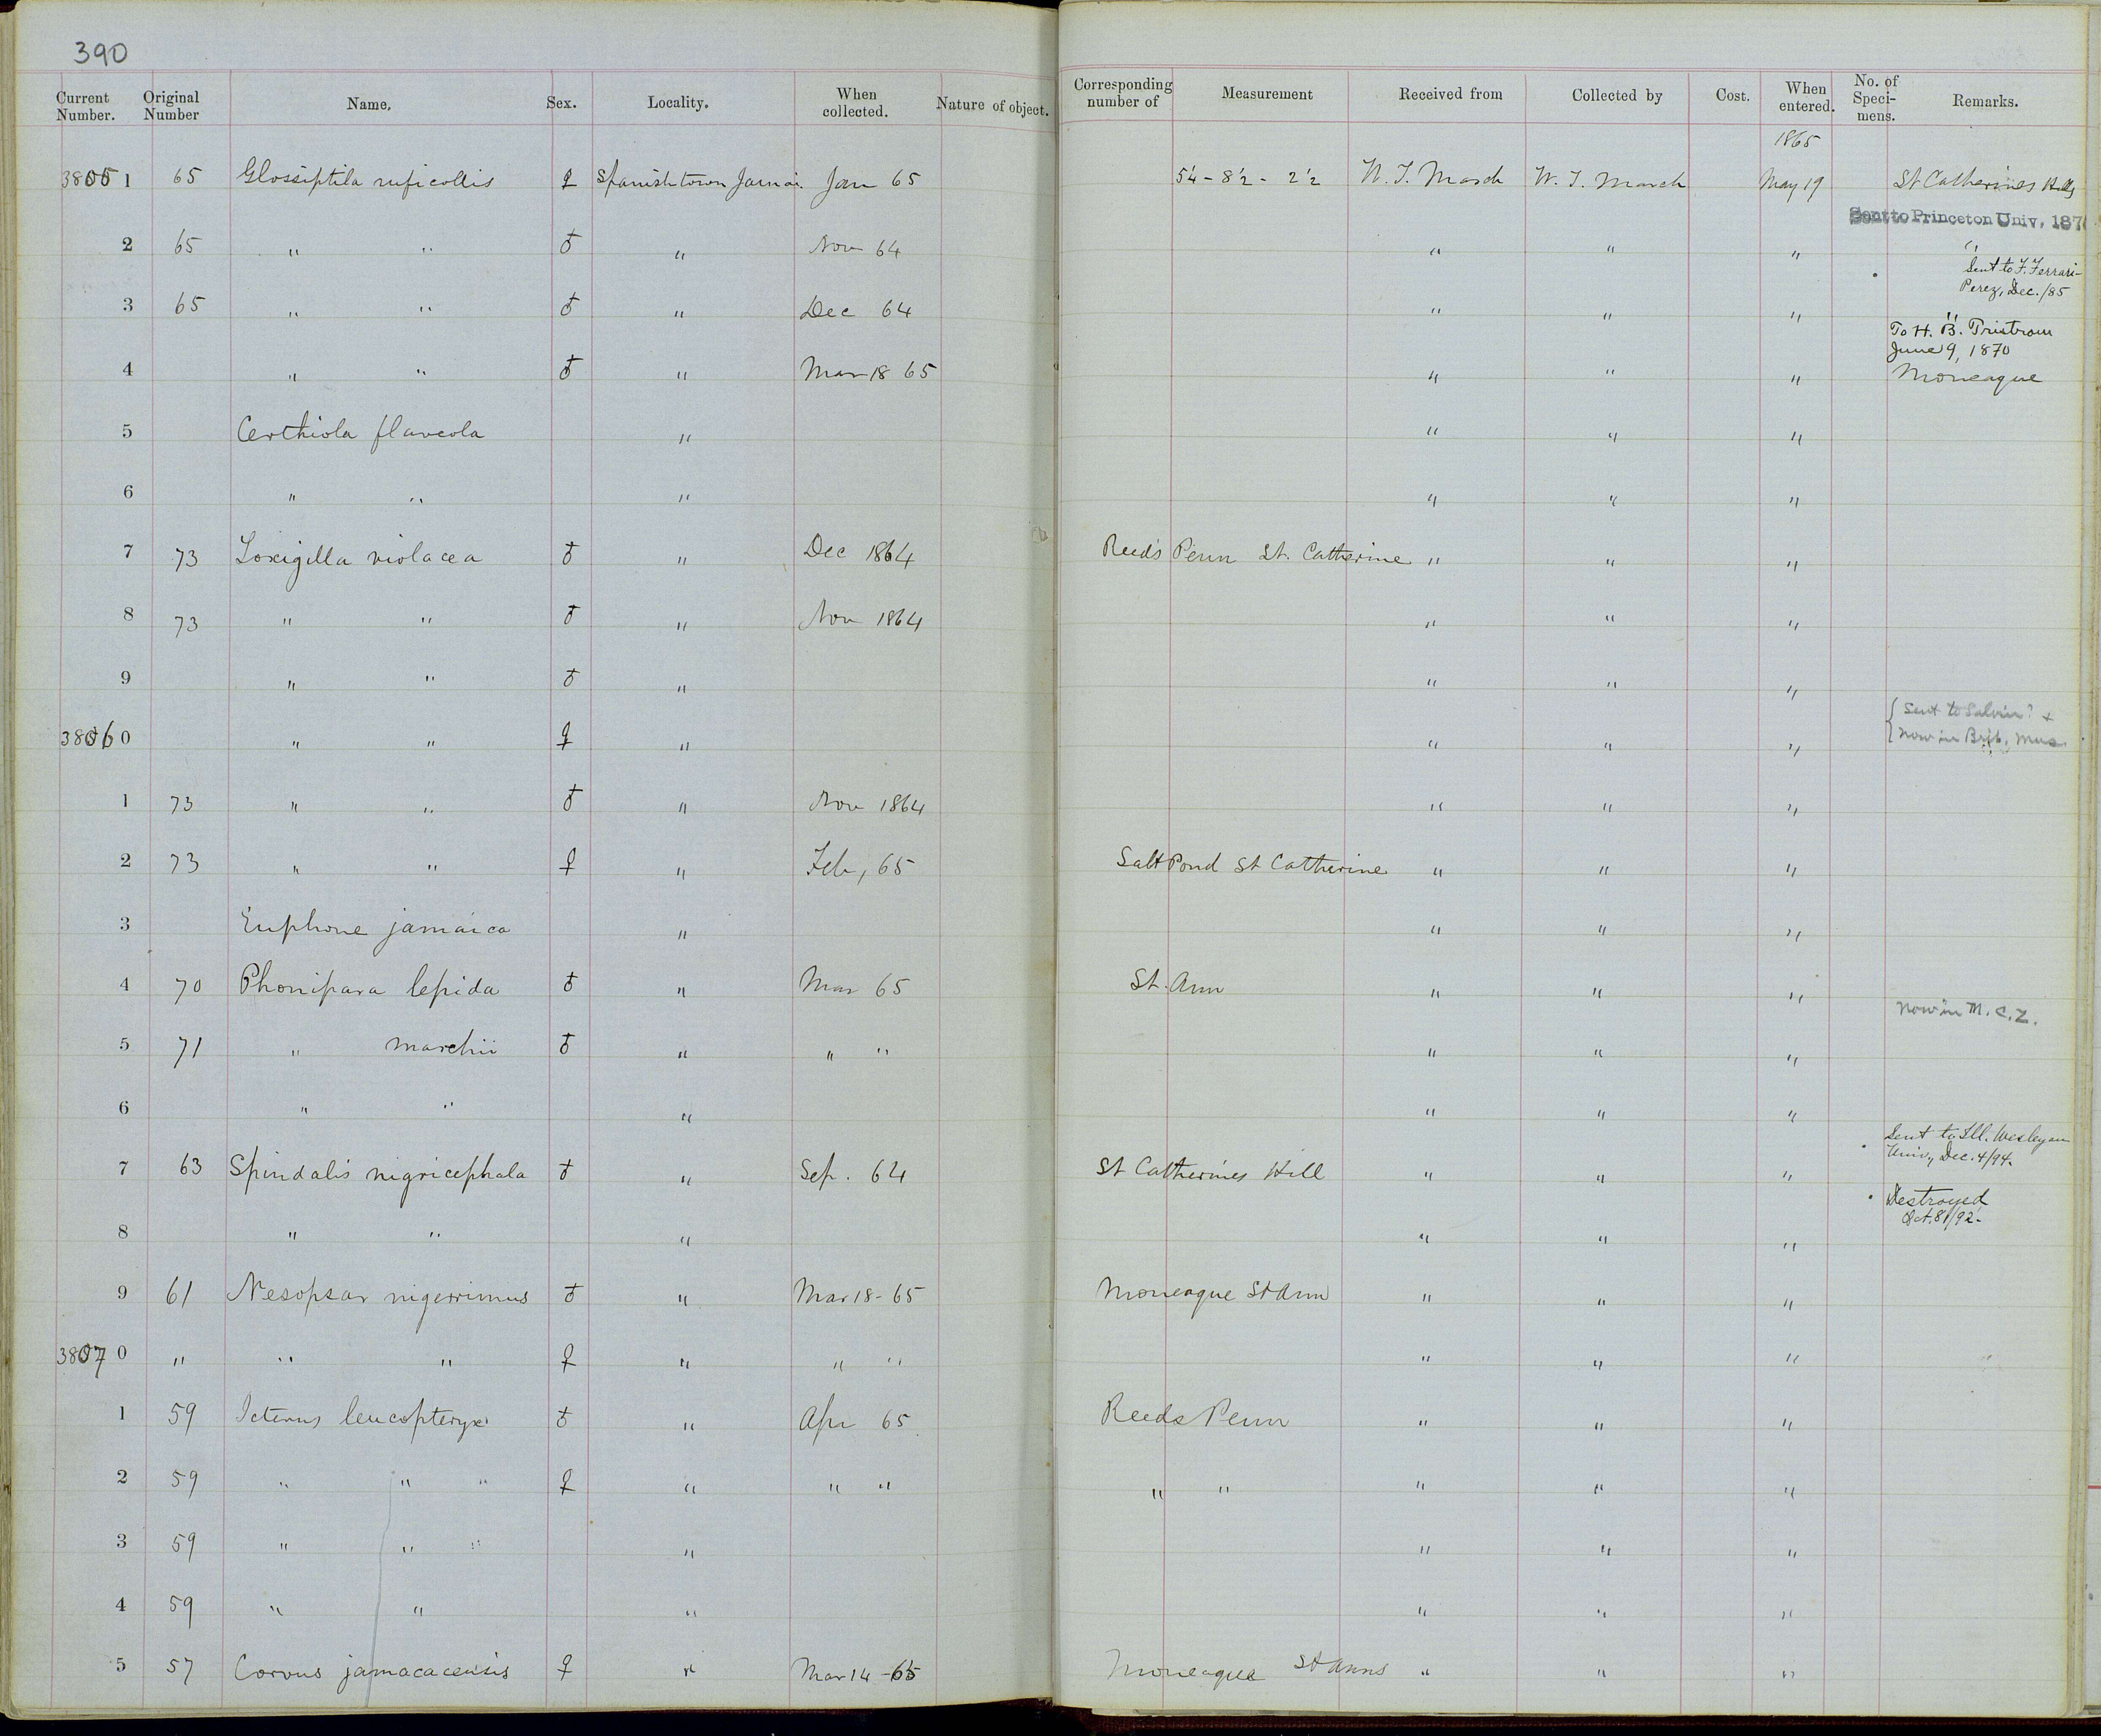 390
Current Number. Original Number Name, Sex. Locality. When collected. Nature of object. Corresponding number of Measurement Received from Collected by Cost. When entered. No. of Speci-mens. Remarks.
1865
38051 65 Glossiptila ruficollis ♀ Spanishtown Jamai. Jan 65 5'4 - 8'2 - 2'2 W. T. March W. T. March May 19 St Catherines Hills
Sent to Princeton Univ. 187
2 65 " " ♂ " Nov 64 " " " "
Sent to F. Ferrari-
Perez, Dec./85
3 65 " " ♂ " Dec 64 " " " "
To H. B. Tristram
June 9, 1870
4 " " ♂ " Mar 18 65 " " " Moneague
5 Certhiola flaveola " " " "
6 " " " " " "
7 73 Loxigilla violacea ♂ " Dec 1864 Reeds Penn St. Catherine " " "
8 73 " " ♂ " Nov 1864 " " "
9 " " ♂ " " " "
{ Sent to Salvin? +
38060 " " ♀ " " " " now in Brit. Mus.
1 73 " " ♂ " Nov 1864 " " "
2 73 " " ♀ " Feb, 65 Salt Pond St Catherine " " "
3 Euphone jamaica " " " "
4 70 Phonipara lepida ♂ " Mar 65 St. Ann " " "
now in M. C. Z.
5 71 " marchii ♂ " " " " " "
6 " " " " " "
Sent to Ill. Wesleyan
Univ., Dec. 4/94.
7 63 Spindalis nigricephala ♂ " Sep. 64 St Catherines Hill " " "
Destroyed
Oct. 81/92.
8 " " " " " "
9 61 Nesopsar nigerrimus ♂ " Mar 18 - 65 Moneague St Ann " " "
38070 " " " ♀ " " " " " "
1 59 Icterus leucopteryx ♂ " Apr 65 Reeds Penn " " "
2 59 " " " ♀ " " " " " " " "
3 59 " " " " " " "
4 59 " " " " " "
5 57 Corvus jamacacensis ♀ " Mar 14 - 65 Moneague St Anns " " "